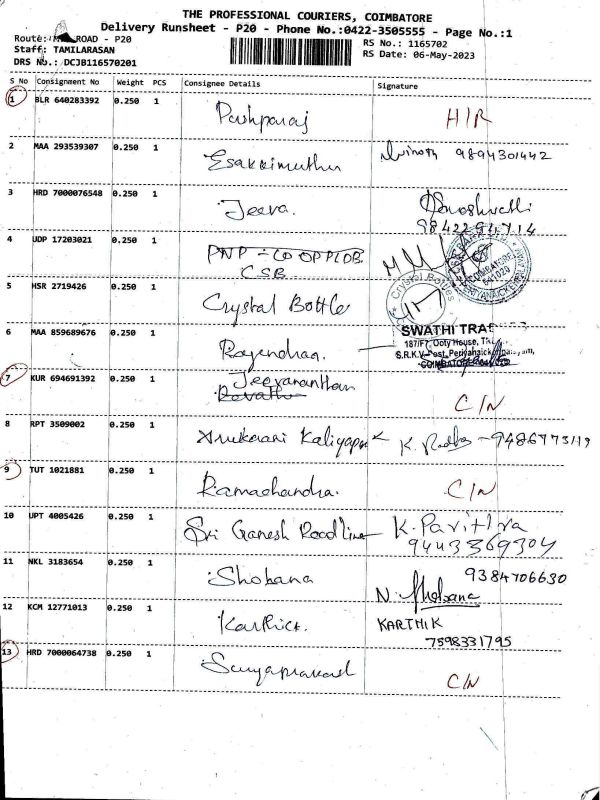 THE PROFESSIONAL COURIERS, COIMBATORE
Delivery Runsheet - P20 - Phone No.:0422-3505555 - Page No.:1
Route: ROAD - P20
RS No.: 1165702
Staff: TAMILARASAN
RS Date: 06-May-2023
DRS No.: DCJB116570201
S No Consignment No Weight PCS Consignee Details Signature
1 BLR 640283392 0.250 1 Pushparaj H/R
2 MAA 293539307 0.250 1 Esakkimuthu Vinoth 9894301442
3 HRD 7000076548 0.250 1 Jeeva.
9842294714
4 UDP 17203021 0.250 1 PNP - CO OPP
CSB
5 HSR 2719426 0.250 1 Crystal Bottle
Crystal Bottles
COIMBATORE
641020
6 MAA 859689676 0.250 1 Rajendran.
SWATHI TRA
187/F7, Ooty House,
S.R.K.V. Post, Periyanaickenpalayam,
COIMBATORE
7 KUR 694691392 0.250 1 Jeevananthan
Revathi C/N
8 RPT 3509002 0.250 1 K. Radha - 9486773119
9 TUT 1021881 0.250 1 Ramachandra. C/N
10 UPT 4005426 0.250 1 Sri Ganesh Roadline K. Pavithra
9443369304
11 NKL 3183654 0.250 1 Shobana 9384706630
N. Shobana
12 KCM 12771013 0.250 1 Karthick. KARTHIK
7598331795
13 HRD 7000064738 0.250 1 Suryaprakash C/N